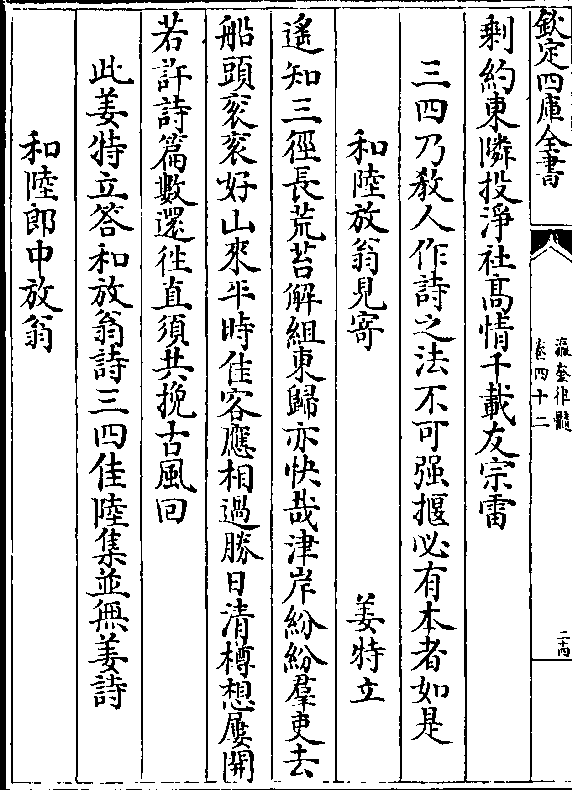 欽定四庫全書
瀛奎律髓
卷四十二
二十四
剩約東隣投淨社高情千載友宗雷
三四乃教人作詩之法不可强揠必有本者如是
和陸放翁見寄 姜特立
遙知三徑長荒苔解組東歸亦快哉津岸紛紛羣吏去
船頭衮衮好山來平時佳客應相過勝日清樽想屢開
若許詩篇數還往直須共挽古風回
此姜特立答和放翁詩三四佳陸集並無姜詩
和陸郎中放翁